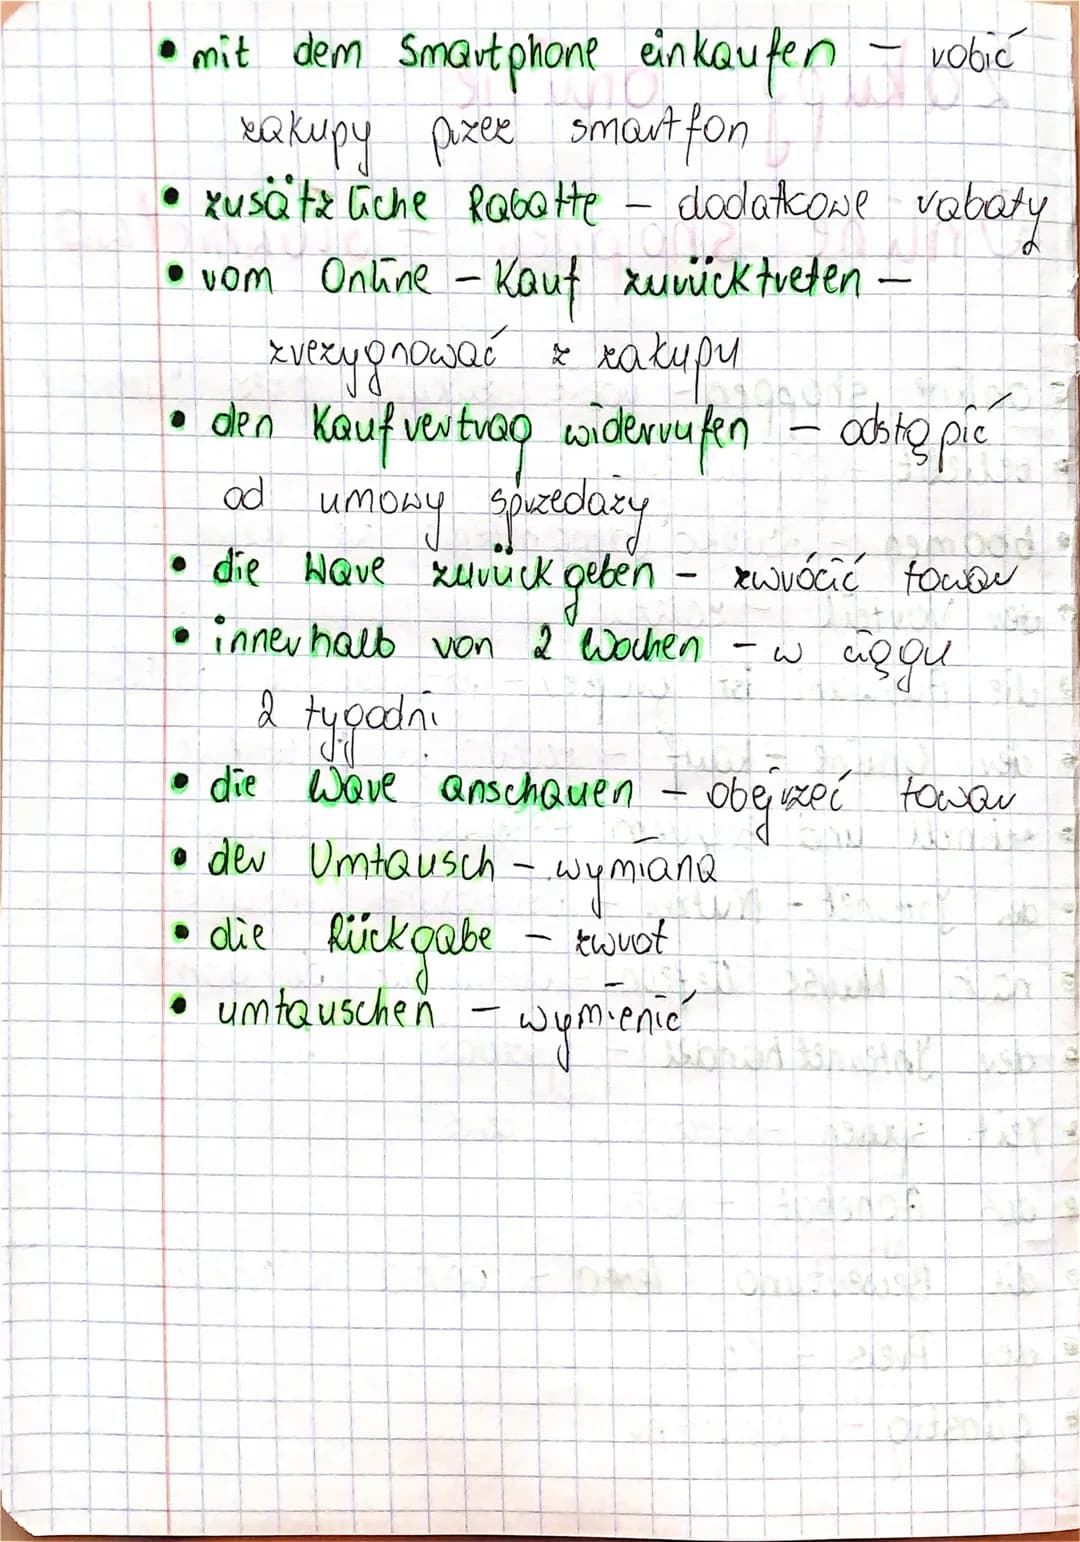 • mit dem Smartphone einkaufen – robić
zakupy przez smartfon
• zusätzliche Rabatte – dodatkowe rabaty
• vom Online-Kauf zurücktreten –
zrezygnować z zakupu
• den Kaufvertrag widerrufen – odstąpić
od umowy sprzedaży
• die Ware zurückgeben – zwrócić towar
• innerhalb von 2 Wochen – w ciągu
2 tygodni
• die Ware anschauen – obejrzeć towar
• der Umtausch – wymiana
• die Rückgabe – zwrot
• umtauschen – wymienić